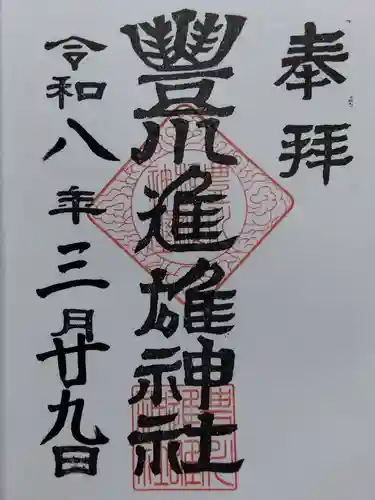 奉拝
豐川進雄神社
令和八年三月廿九日